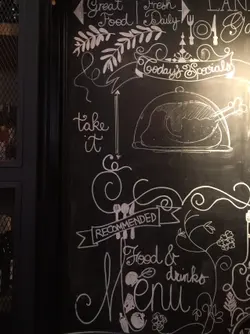 Great Food
Fresh Daily
LAN
Today's Specials
take it
RECOMMENDED
Food &
drinks
Menu